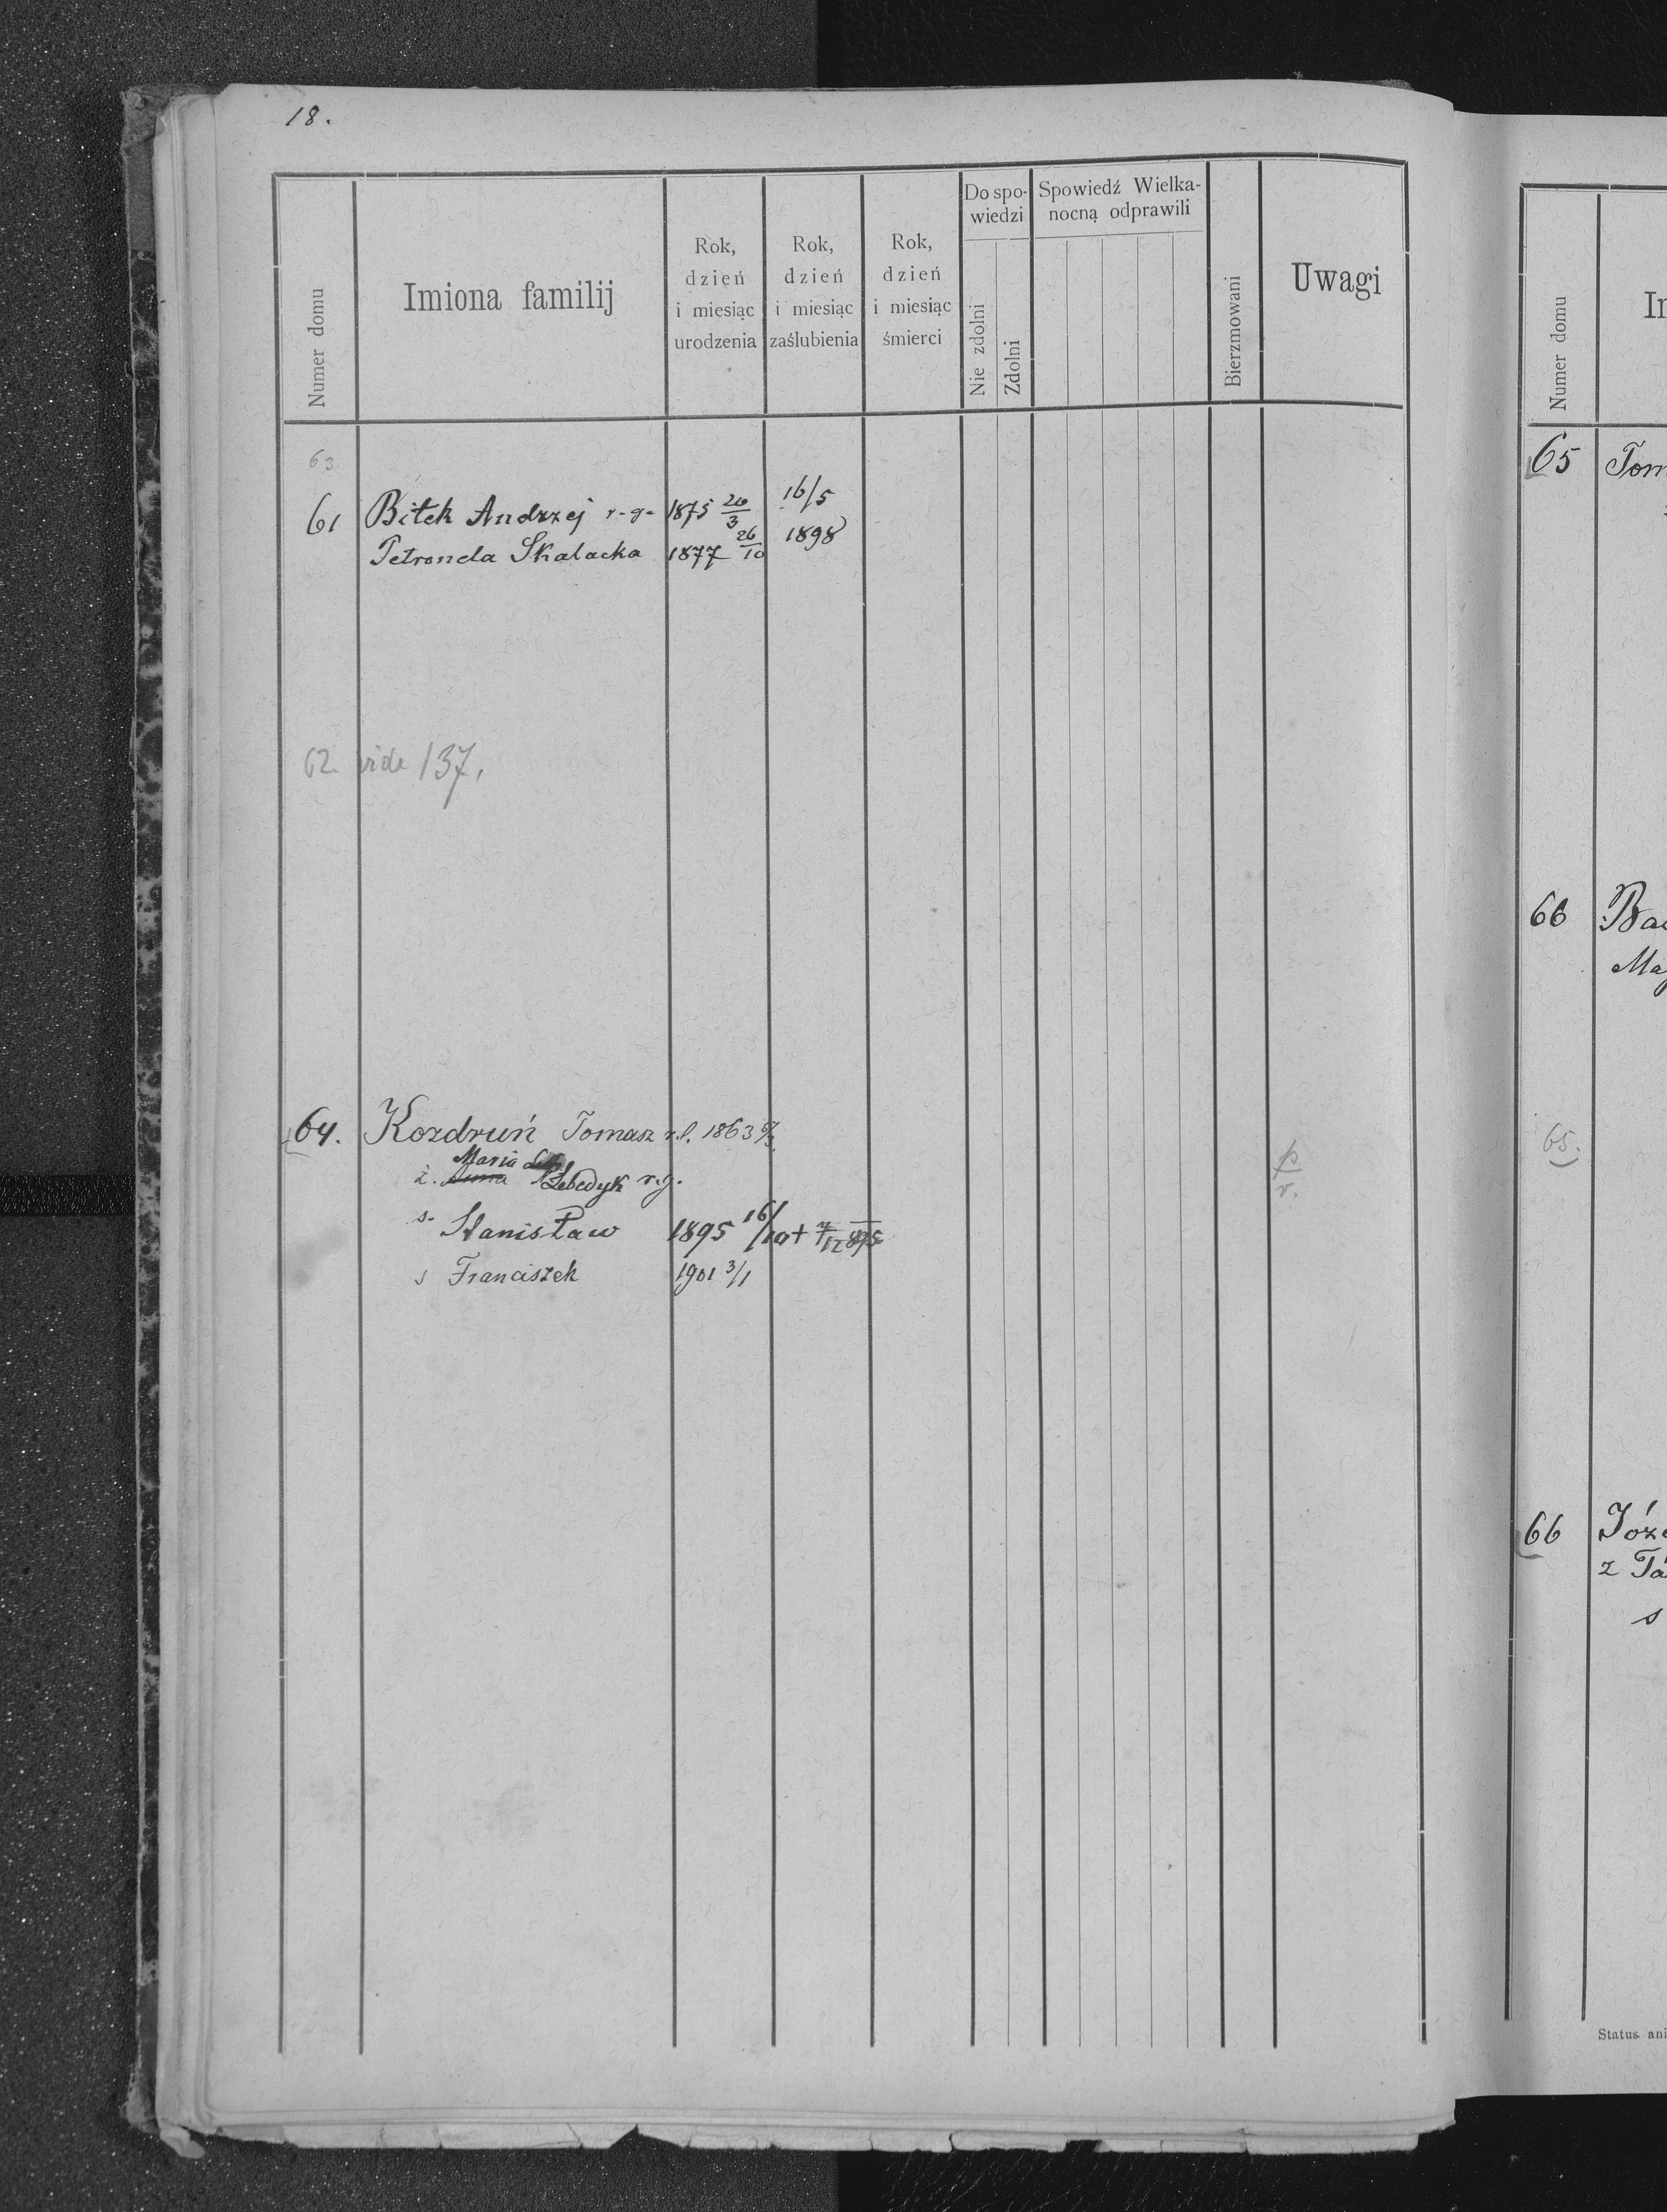 18.
Numer domu
Imiona familij
Rok,
dzień
i miesiąc
urodzenia
Rok,
dzień
i miesiąc
zaślubienia
Rok,
dzień
i miesiąc
śmierci
Do spo-
wiedzi
Nie zdolni
Zdolni
Spowiedź Wielka-
nocną odprawili
Bierzmowani
Uwagi
63
61 Bitek Andrzej r-g- 1875 20/3 16/5
Petronela Skalacka 1877 26/10 1898
62. vide 137.
64. Kozdruń Tomasz r.l. 1863
Maria
ż. Anna Lebedyk r.g.
s. Stanisław 1895 16/10 + 7/12 895
s Franciszek 1901 3/1
p/r.
Numer domu
65 Tom
66 Ba
Ma
65.
66 Józ
z
s
Status ani